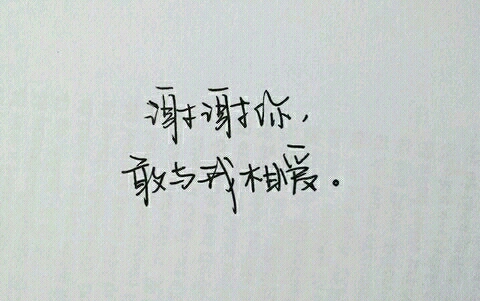 谢谢你，
敢与我相爱。